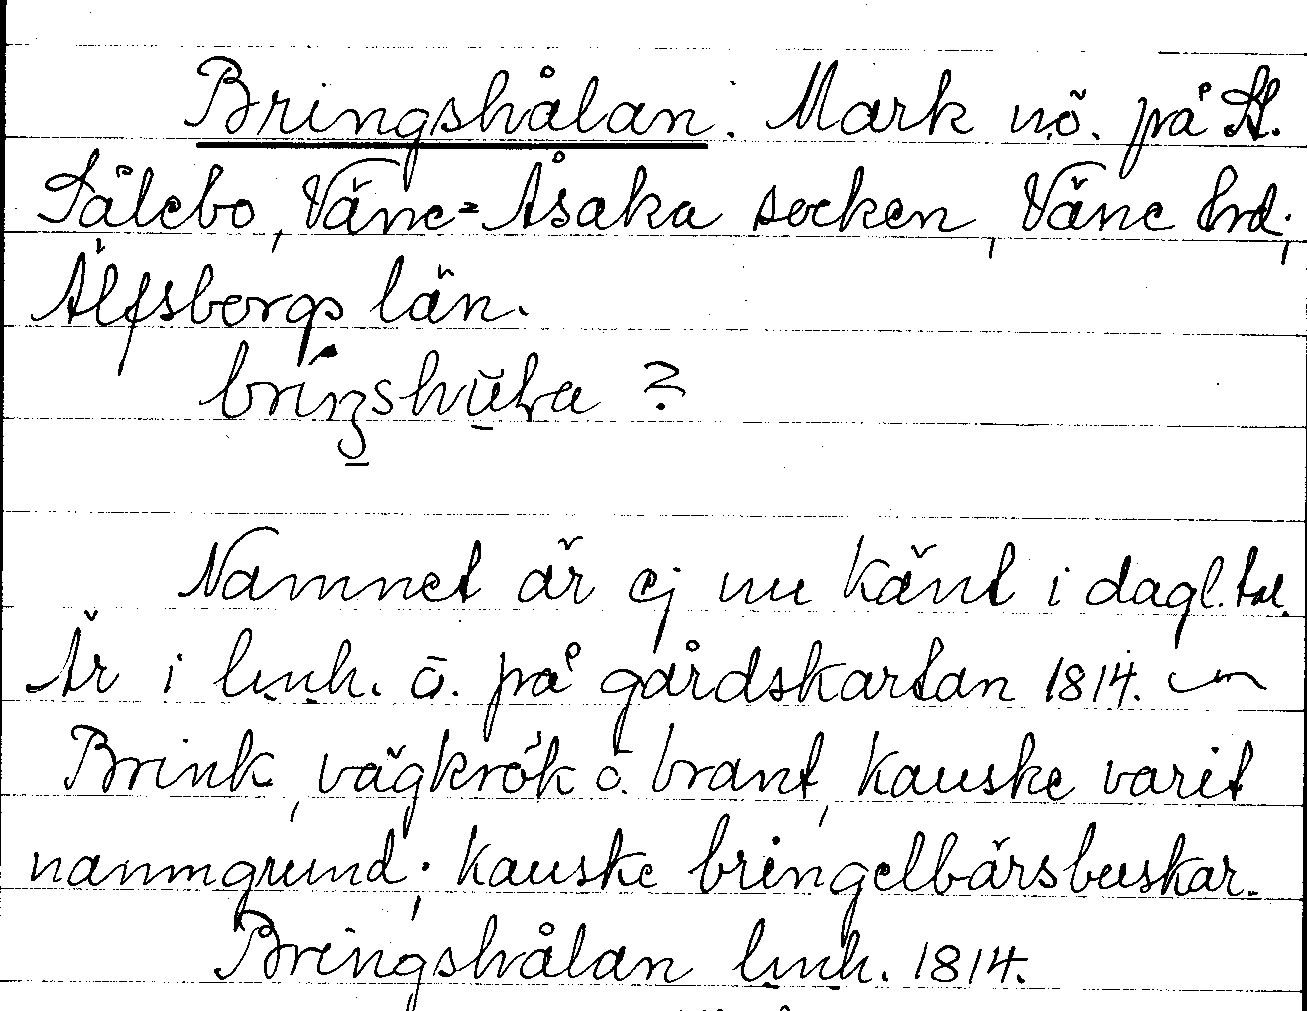 Bringshålan. Mark nö. på St.
Sålebo, Väne-Åsaka socken, Väne hrd,
Älfsborgs län.
?
Namnet är ej nu känt i dagl. tal.
Är i lmh. o. på gårdskartan 1814.
Brink, vägkrök o. brant, kanske varit
namngrund; kanske bringelbärsbuskar.
Bringshålan lmh. 1814.